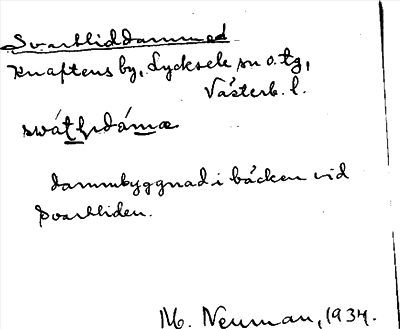 Svartliddammen
Knaftens by, Lycksele sn o. tg,
Västerb. l.
dammbyggnad i bäcken vid
Svartliden.
M. Neuman, 1934.